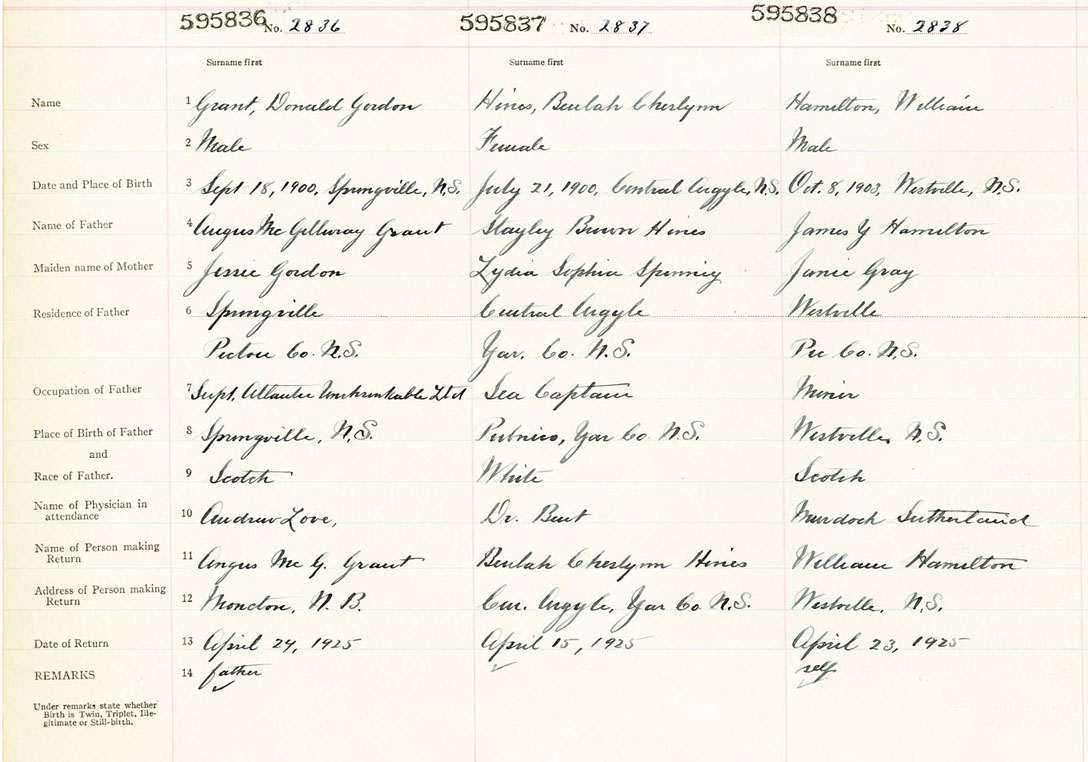 595836 No. 2836 595837 No. 2837 595838 No. 2838
Surname first Surname first Surname first
Name 1 Grant, Donald Gordon Hines, Beulah Cherlynn Hamilton, William
Sex 2 Male Female Male
Date and Place of Birth 3 Sept 18, 1900, Springville, N.S. July 21, 1900, Central Argyle, N.S. Oct. 8, 1903, Westville, N.S.
Name of Father 4 Angus Mc Gillivray Grant Stayley Brown Hines James Y Hamilton
Maiden name of Mother 5 Jessie Gordon Lydia Sophia Spinney Janie Gray
Residence of Father 6 Springville Central Argyle Westville
Pictou Co. N.S. Yar. Co. N.S. Pic Co. N.S.
Occupation of Father 7 Supt. Atlantic Unshrinkable Ltd Sea Captain Miner
Place of Birth of Father 8 Springville, N.S. Pubnico, Yar Co. N.S. Westville, N.S.
and
Race of Father. 9 Scotch White Scotch
Name of Physician in
attendance 10 Andrew Love, Dr. Murdock Sutherland
Name of Person making
Return 11 Angus Mc G. Grant Beulah Cherlynn Hines William Hamilton
Address of Person making
Return 12 Moncton, N.B. Cen. Argyle, Yar Co. N.S. Westville, N.S.
Date of Return 13 April 24, 1925 April 15, 1925 April 23, 1925
REMARKS 14 father self
Under remarks state whether
Birth is Twin, Triplet, Ille-
gitimate or Still-birth.